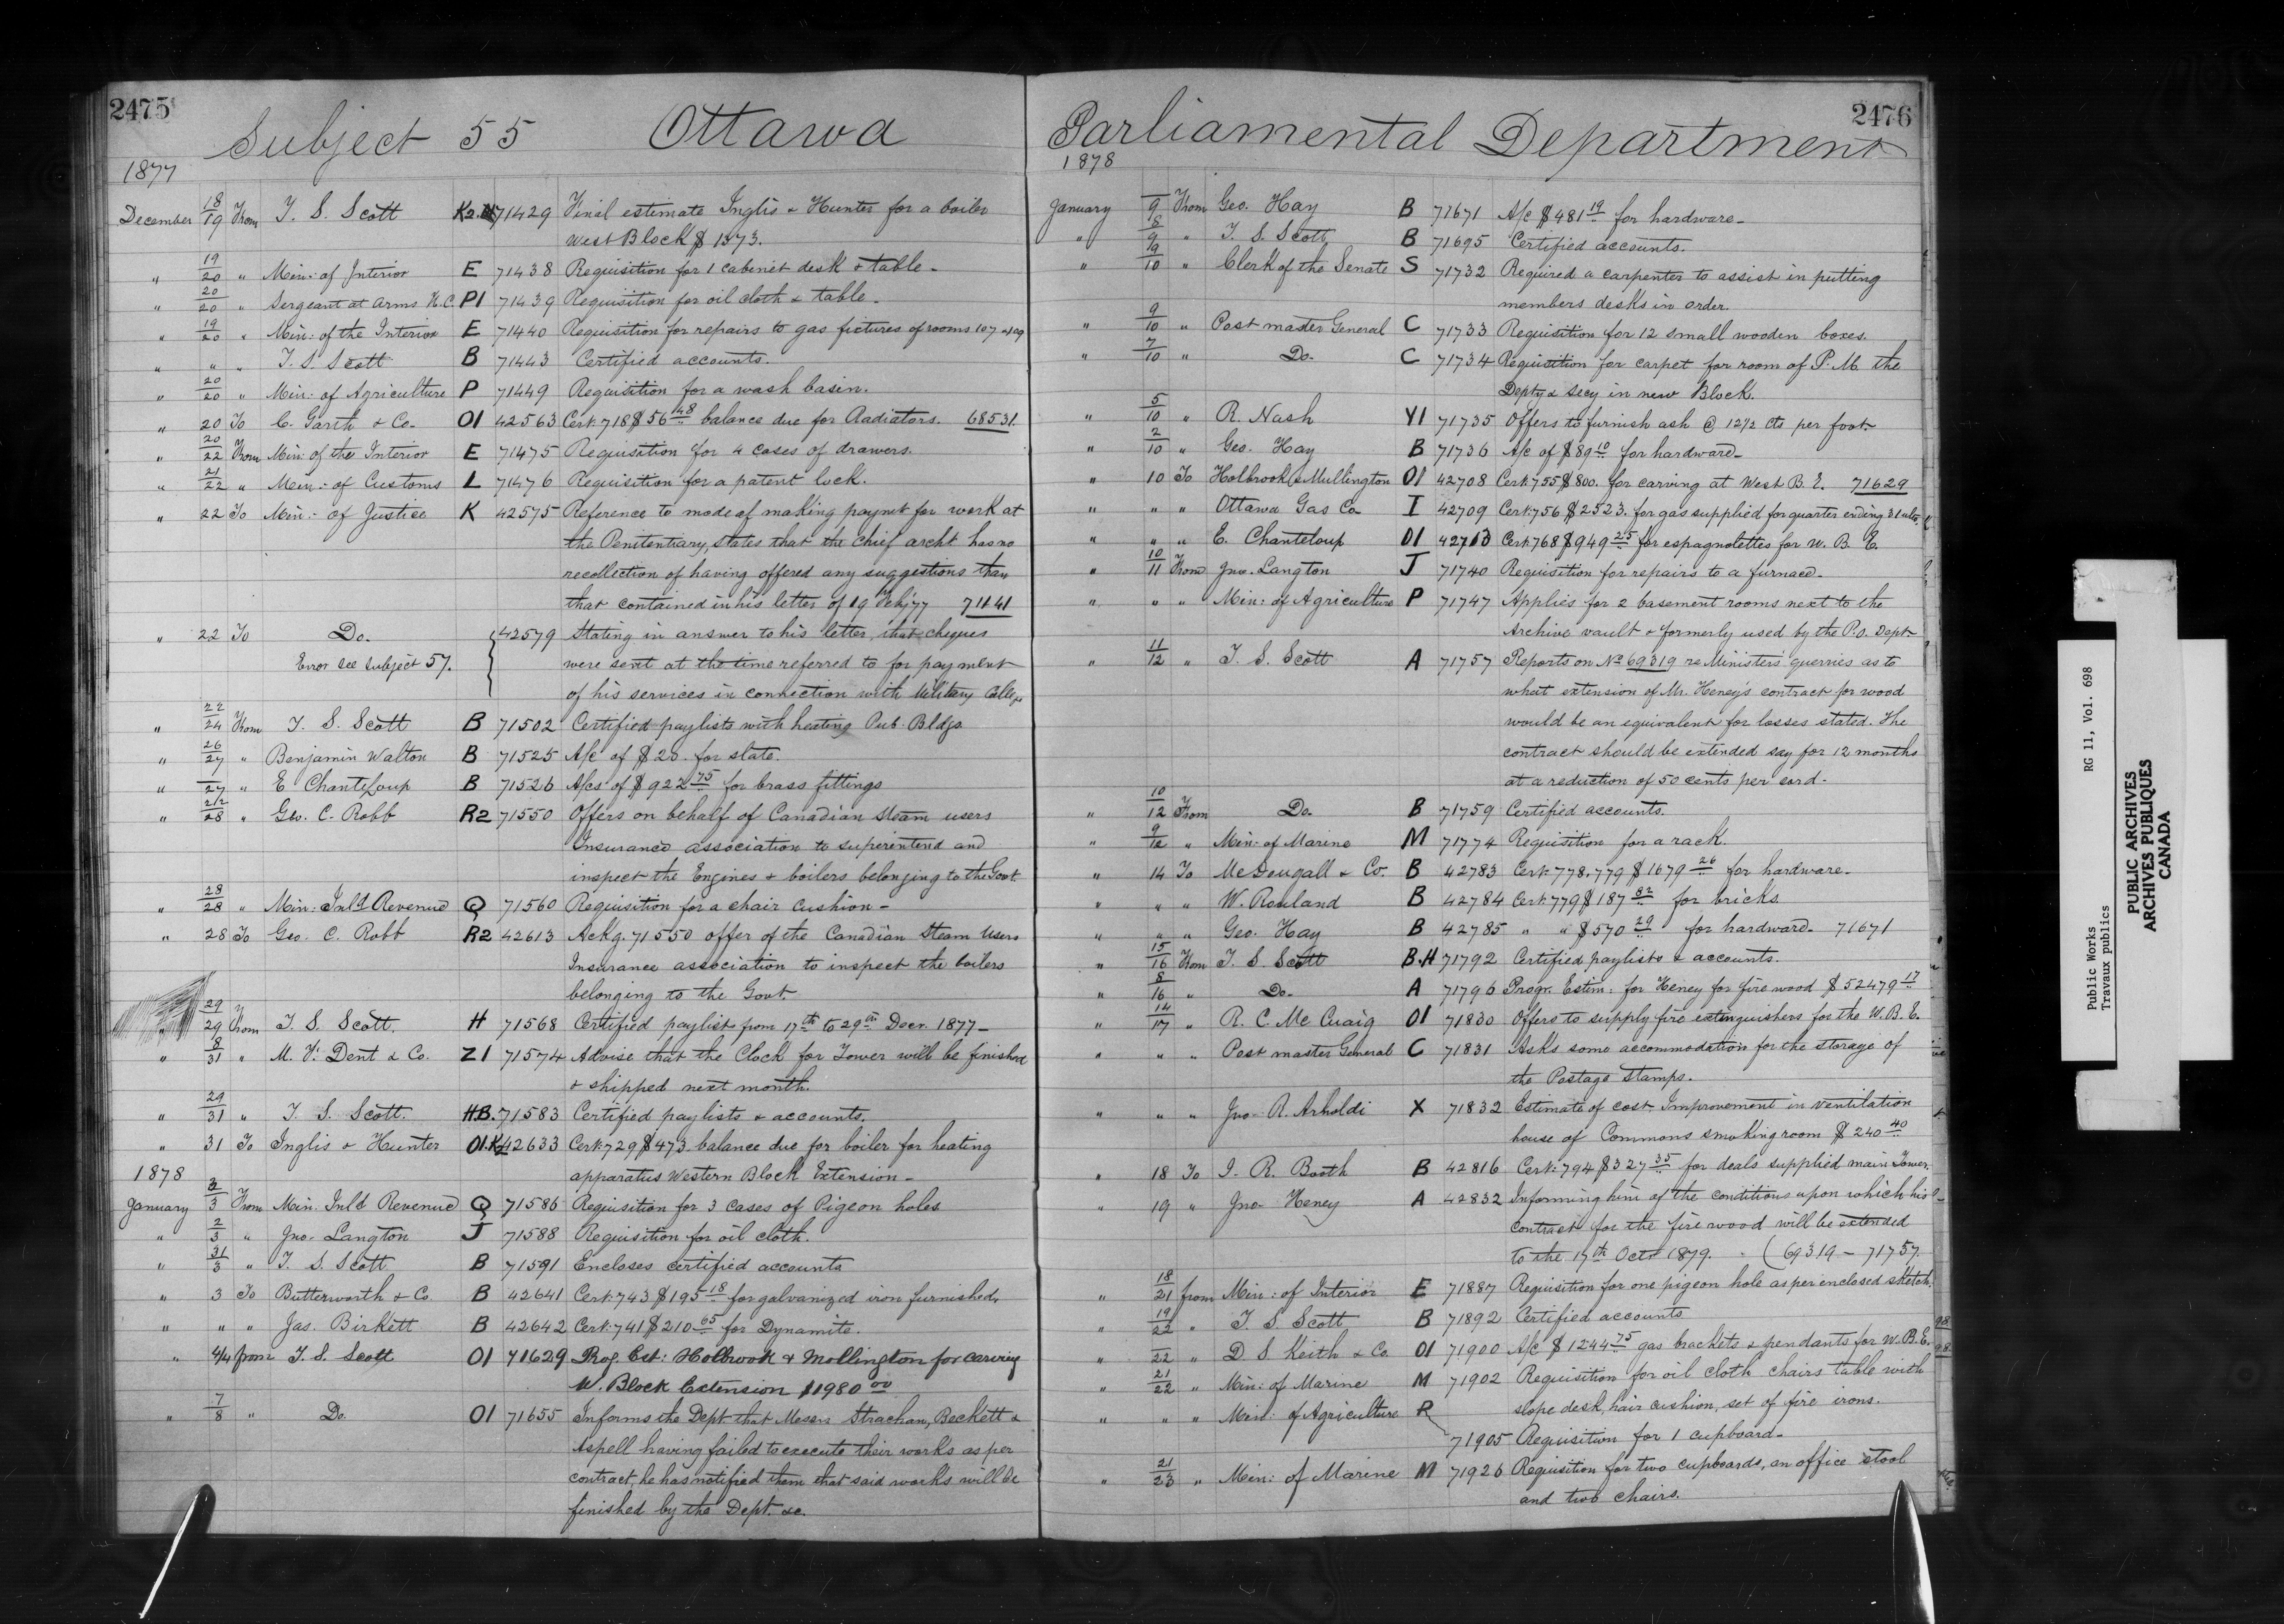 2475
Subject 55 Ottawa
1877
December 18/19 From T. S. Scott K2. 71429 Final estimate Inglis & Hunter for a boiler
West Block $ 1373.
" 19/20 " Min: of Interior E 71438 Requisition for 1 cabinet desk & table -
" 20/20 " Sergeant at Arms H.C. P1 71439 Requisition for oil cloth & table -
" 19/20 " Min: of the Interior E 71440 Requisition for repairs to gas fictures of rooms 107 & 109
" " " T. S. Scott B 71443 Certified accounts.
" 20/20 " Min: of Agriculture P 71449 Requisition for a wash basin.
" 20 To C. Garth & Co. O1 42563 Cert: 718 $ 56 48 balance due for Radiators. 68531.
" 20/22 From Min: of the Interior E 71475 Requisition for 4 cases of drawers.
" 21/22 " Min: of Customs L 71476 Requisition for a patent lock.
" 22 To Min: of Justice K 42575 Reference to mode of making paymt for work at
the Penitentiary, states that the chief archt has no
recollection of having offered any suggestions than
that contained in his letter of 19 Feby 77 71141
" 22 To Do. 42579 Stating in answer to his letter, that cheques
Error see subject 57. were sent at the time referred to for payment
of his services in connection with Military College
" 22/24 From T. S. Scott B 71502 Certified paylists with heating Pub. Bldgs
" 26/27 " Benjamin Walton B 71525 A/c of $ 20. for slate.
" 27 " E. ChanteLoup B 71526 A/cs of $ 922 75 for brass fittings
" 22/28 " Geo. C. Robb R2 71550 Offers on behalf of Canadian Steam users
Insurance association to superintend and
inspect the Engines & boilers belonging to the Govt.
" 28/28 " Min: Inld Revenue Q 71560 Requisition for a chair cushion -
" 28 To Geo. C. Robb R2 42613 Ackg. 71550 offer of the Canadian Steam Users
Insurance association to inspect the boilers
belonging to the Govt.
" 29/29 From T. S. Scott. H 71568 Certified paylist from 17th to 29th Decr. 1877 -
" 8/31 " M. F. Dent & Co. Z1 71574 Advise that the Clock for Tower will be finished
& shipped next month.
" 29/31 " T. S. Scott. HB. 71583 Certified paylists & accounts.
" 31 To Inglis & Hunter O1.K2 42633 Cert: 729 $ 473 balance due for boiler for heating
1878 apparatus Western Block Extension -
January 3/3 From Min. Inld Revenue Q 71586 Requisition for 3 cases of Pigeon holes
" 2/3 " Jno. Langton J 71588 Requisition for oil cloth.
" 31/3 " T. S. Scott B 71591 Encloses certified accounts
" 3 To Butterworth & Co. B 42641 Cert: 743 $ 195 18 for galvanized iron furnished.
" " " Jas. Birkett B 42642 Cert: 741 $ 210 65 for Dynamite.
" 4/4 from T. S. Scott O1 71629 Prog. Est: Holbrook & Mollington for carving
W. Block Extension $1980 00
" 7/8 " Do. O1 71655 Informs the Dept that Messrs Strachan, Beckett &
Aspell having failed to execute their works as per
contract, he has notified them that said works will be
finished by the Dept. &c.
2476
Parliamental Department
1878
January 9/9 From Geo. Hay B 71671 A/c $ 481 19 for hardware -
" 8/9 " T. S. Scott B 71695 Certified accounts.
" 9/10 " Clerk of the Senate S 71732 Required a carpenter to assist in putting
members desks in order.
" 9/10 " Post master General C 71733 Requisition for 12 small wooden boxes.
" 7/10 " Do. C 71734 Requisition for carpet for room of P. M. the
Depty & Secy in new Block.
" 5/10 " R. Nash Y1 71735 Offers to furnish ash @ 12 1/2 cts per foot.
" 2/10 " Geo. Hay B 71736 A/c of $ 89 10 for hardware -
" 10 To Holbrook & Mullington O1 42708 Cert: 755 $ 800. for carving at West B. E. 71629
" " " Ottawa Gas Co. I 42709 Cert: 756 $ 2523. for gas supplied for quarter ending 31 ulto.
" " " E. Chanteloup O1 42713 Cert: 768 $ 949 25 for espagnolettes for W. B. E.
" 10/11 From Jno. Langton J 71740 Requisition for repairs to a furnace -
" " " Min: of Agriculture P 71747 Applies for 2 basement rooms next to the
Archive vault & formerly used by the P.O. Dept
" 11/12 " T. S. Scott A 71757 Reports on No 69319 re Ministers' querries as to
what extension of Mr. Heney's contract for wood
would be an equivalent for losses stated. The
contract should be extended say for 12 months
at a reduction of 50 cents per cord -
" 10/12 From Do. B 71759 Certified accounts.
" 9/12 " Min: of Marine M 71774 Requisition for a rack.
" 14 To McDougall & Co. B 42783 Cert: 778.779 $ 1679 26 for hardware -
" " " W. Rowland B 42784 Cert: 779 $ 187 82 for bricks
" " " Geo. Hay B 42785 " " $ 570 29 for hardware - 71671
" 15/16 From T. S. Scott B.H 71792 Certified paylists & accounts.
" 8/16 " Do. A 71796 Progr. Estim: for Heney for fire wood $ 52479 17
" 14/17 " R. C. McCuaig O1 71830 Offers to supply fire extinguishers for the W. B. E.
" " " Post master General C 71831 Asks some accommodation for the storage of
the Postage Stamps.
" " " Jno. R. Arholdi X 71832 Estimate of cost Improvement in Ventilation
house of Commons smoking room $ 240 40
" 18 To J. R. Booth B 42816 Cert: 794 $ 327 35 for deals supplied main Tower.
" 19 " Jno. Heney A 42832 Informing him of the conditions upon which his
contract for the fire wood will be extended
to the 17th Octr 1879. (69319 - 71757.
" 18/21 from Min: of Interior E 71887 Requisition for one pigeon hole as per enclosed sketch.
" 19/22 " T. S. Scott B 71892 Certified accounts
" 22 " D. S. Keith & Co. O1 71900 A/c $ 1244 75 gas brackets & pendants for W. B. E.
" 21/22 " Min: of Marine M 71902 Requisition for oil cloth chairs table with
slope desk, hair cushion, set of fire irons.
" " " Min: of Agriculture R 71905 Requisition for 1 cupboard -
" 21/23 " Min: of Marine M 71926 Requisition for two cupboards, an office stool
and two chairs.
Public Works RG 11, Vol. 698
Travaux publics
PUBLIC ARCHIVES
ARCHIVES PUBLIQUES
CANADA